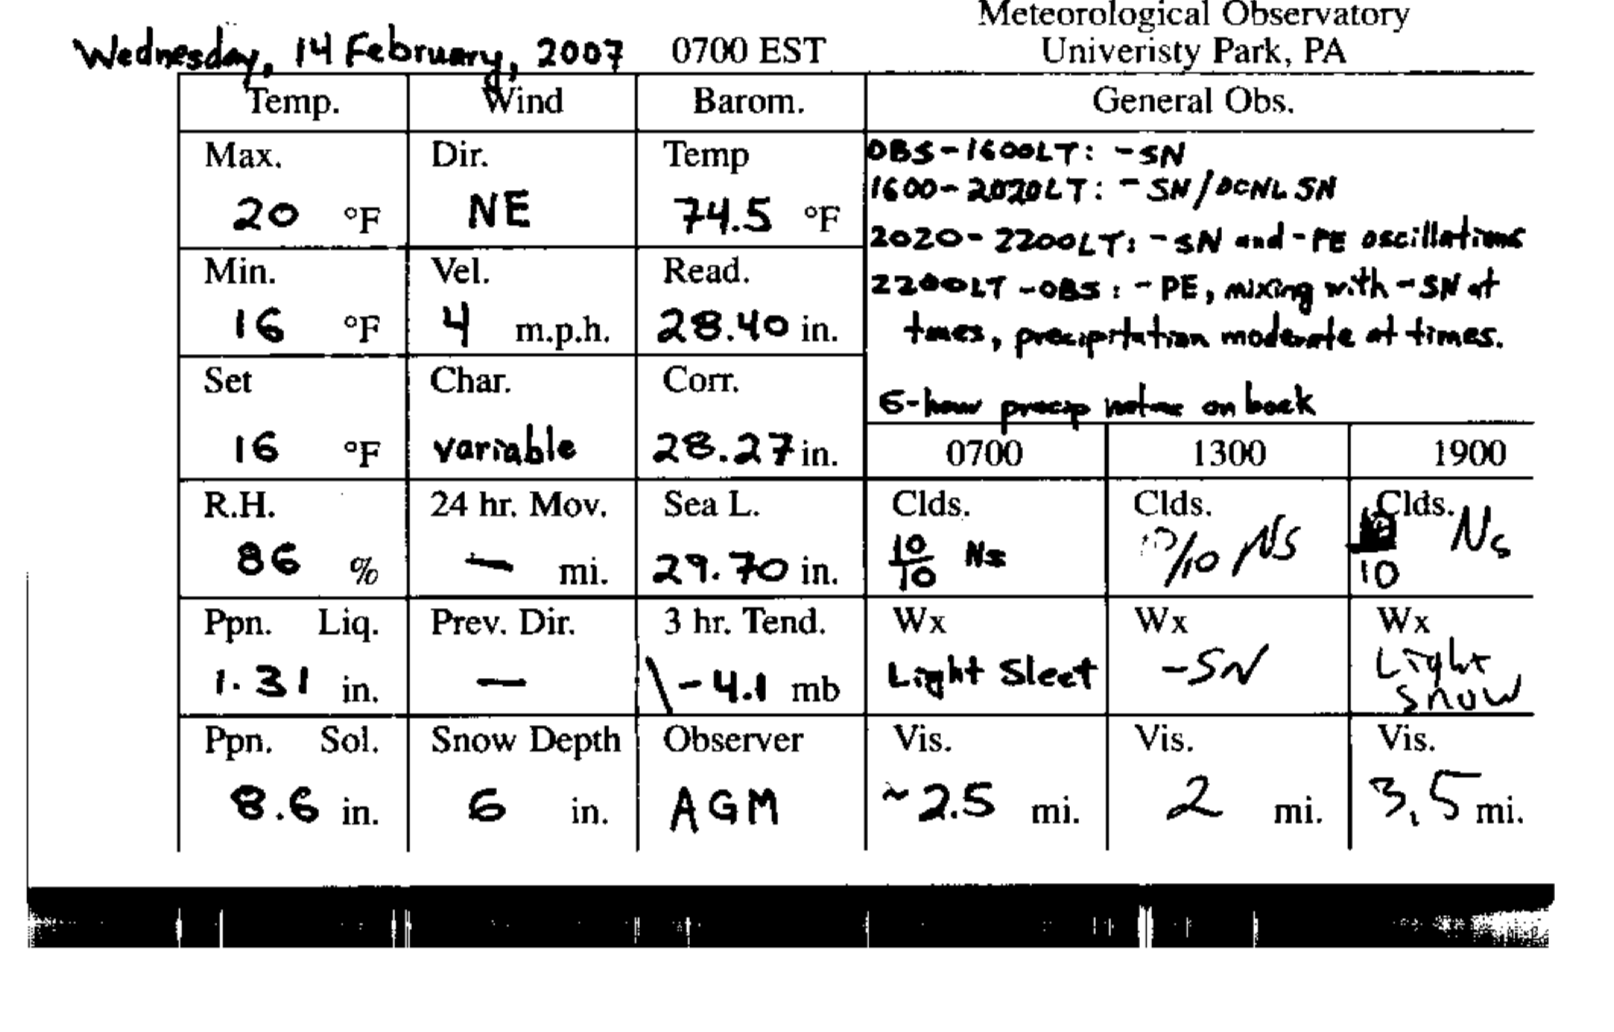 Meteorological Observatory
Wednesday, 14 February, 2007 0700 EST Univeristy Park, PA
Temp. Wind Barom. General Obs.
Max. Dir. Temp
20 °F NE 74.5 °F
Min. Vel. Read.
16 °F 4 m.p.h. 28.40 in.
Set Char. Corr.
16 °F variable 28.27 in.
OBS-1600LT: -SN
1600-2020LT: -SN/OCNL SN
2020-2200LT: -SN and -PE oscillations
2200LT-OBS: -PE, mixing with -SN at
times, precipitation moderate at times.
6-hour precip on back
0700 1300 1900
R.H. 24 hr. Mov. Sea L. Clds. Clds. Clds.
86 % — mi. 29.70 in. 10/10 Ns 10/10 NS 10 Ns
Ppn. Liq. Prev. Dir. 3 hr. Tend. Wx Wx Wx
1.31 in. — \ -4.1 mb Light Sleet -SN Light
Snow
Ppn. Sol. Snow Depth Observer Vis. Vis. Vis.
8.6 in. 6 in. AGM ~2.5 mi. 2 mi. 3.5 mi.